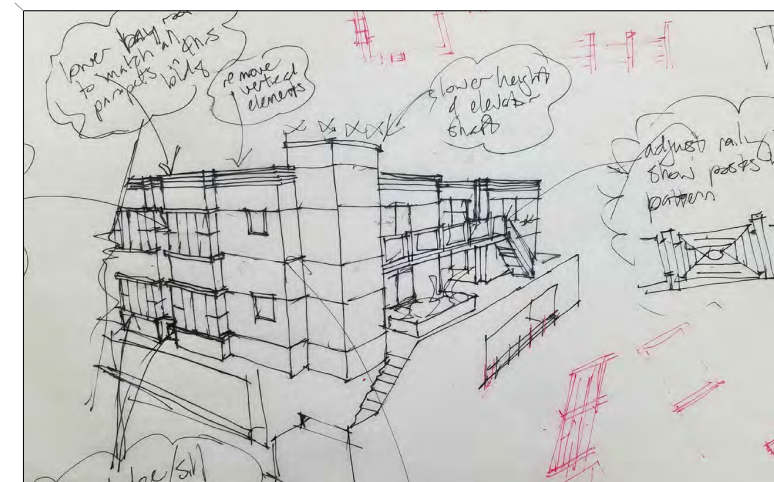 lower bay roof
to match all
parapets in this
bldg
remove
vertical
elements
lower height
of elevator
shaft
adjust rail
show posts
pattern
sill